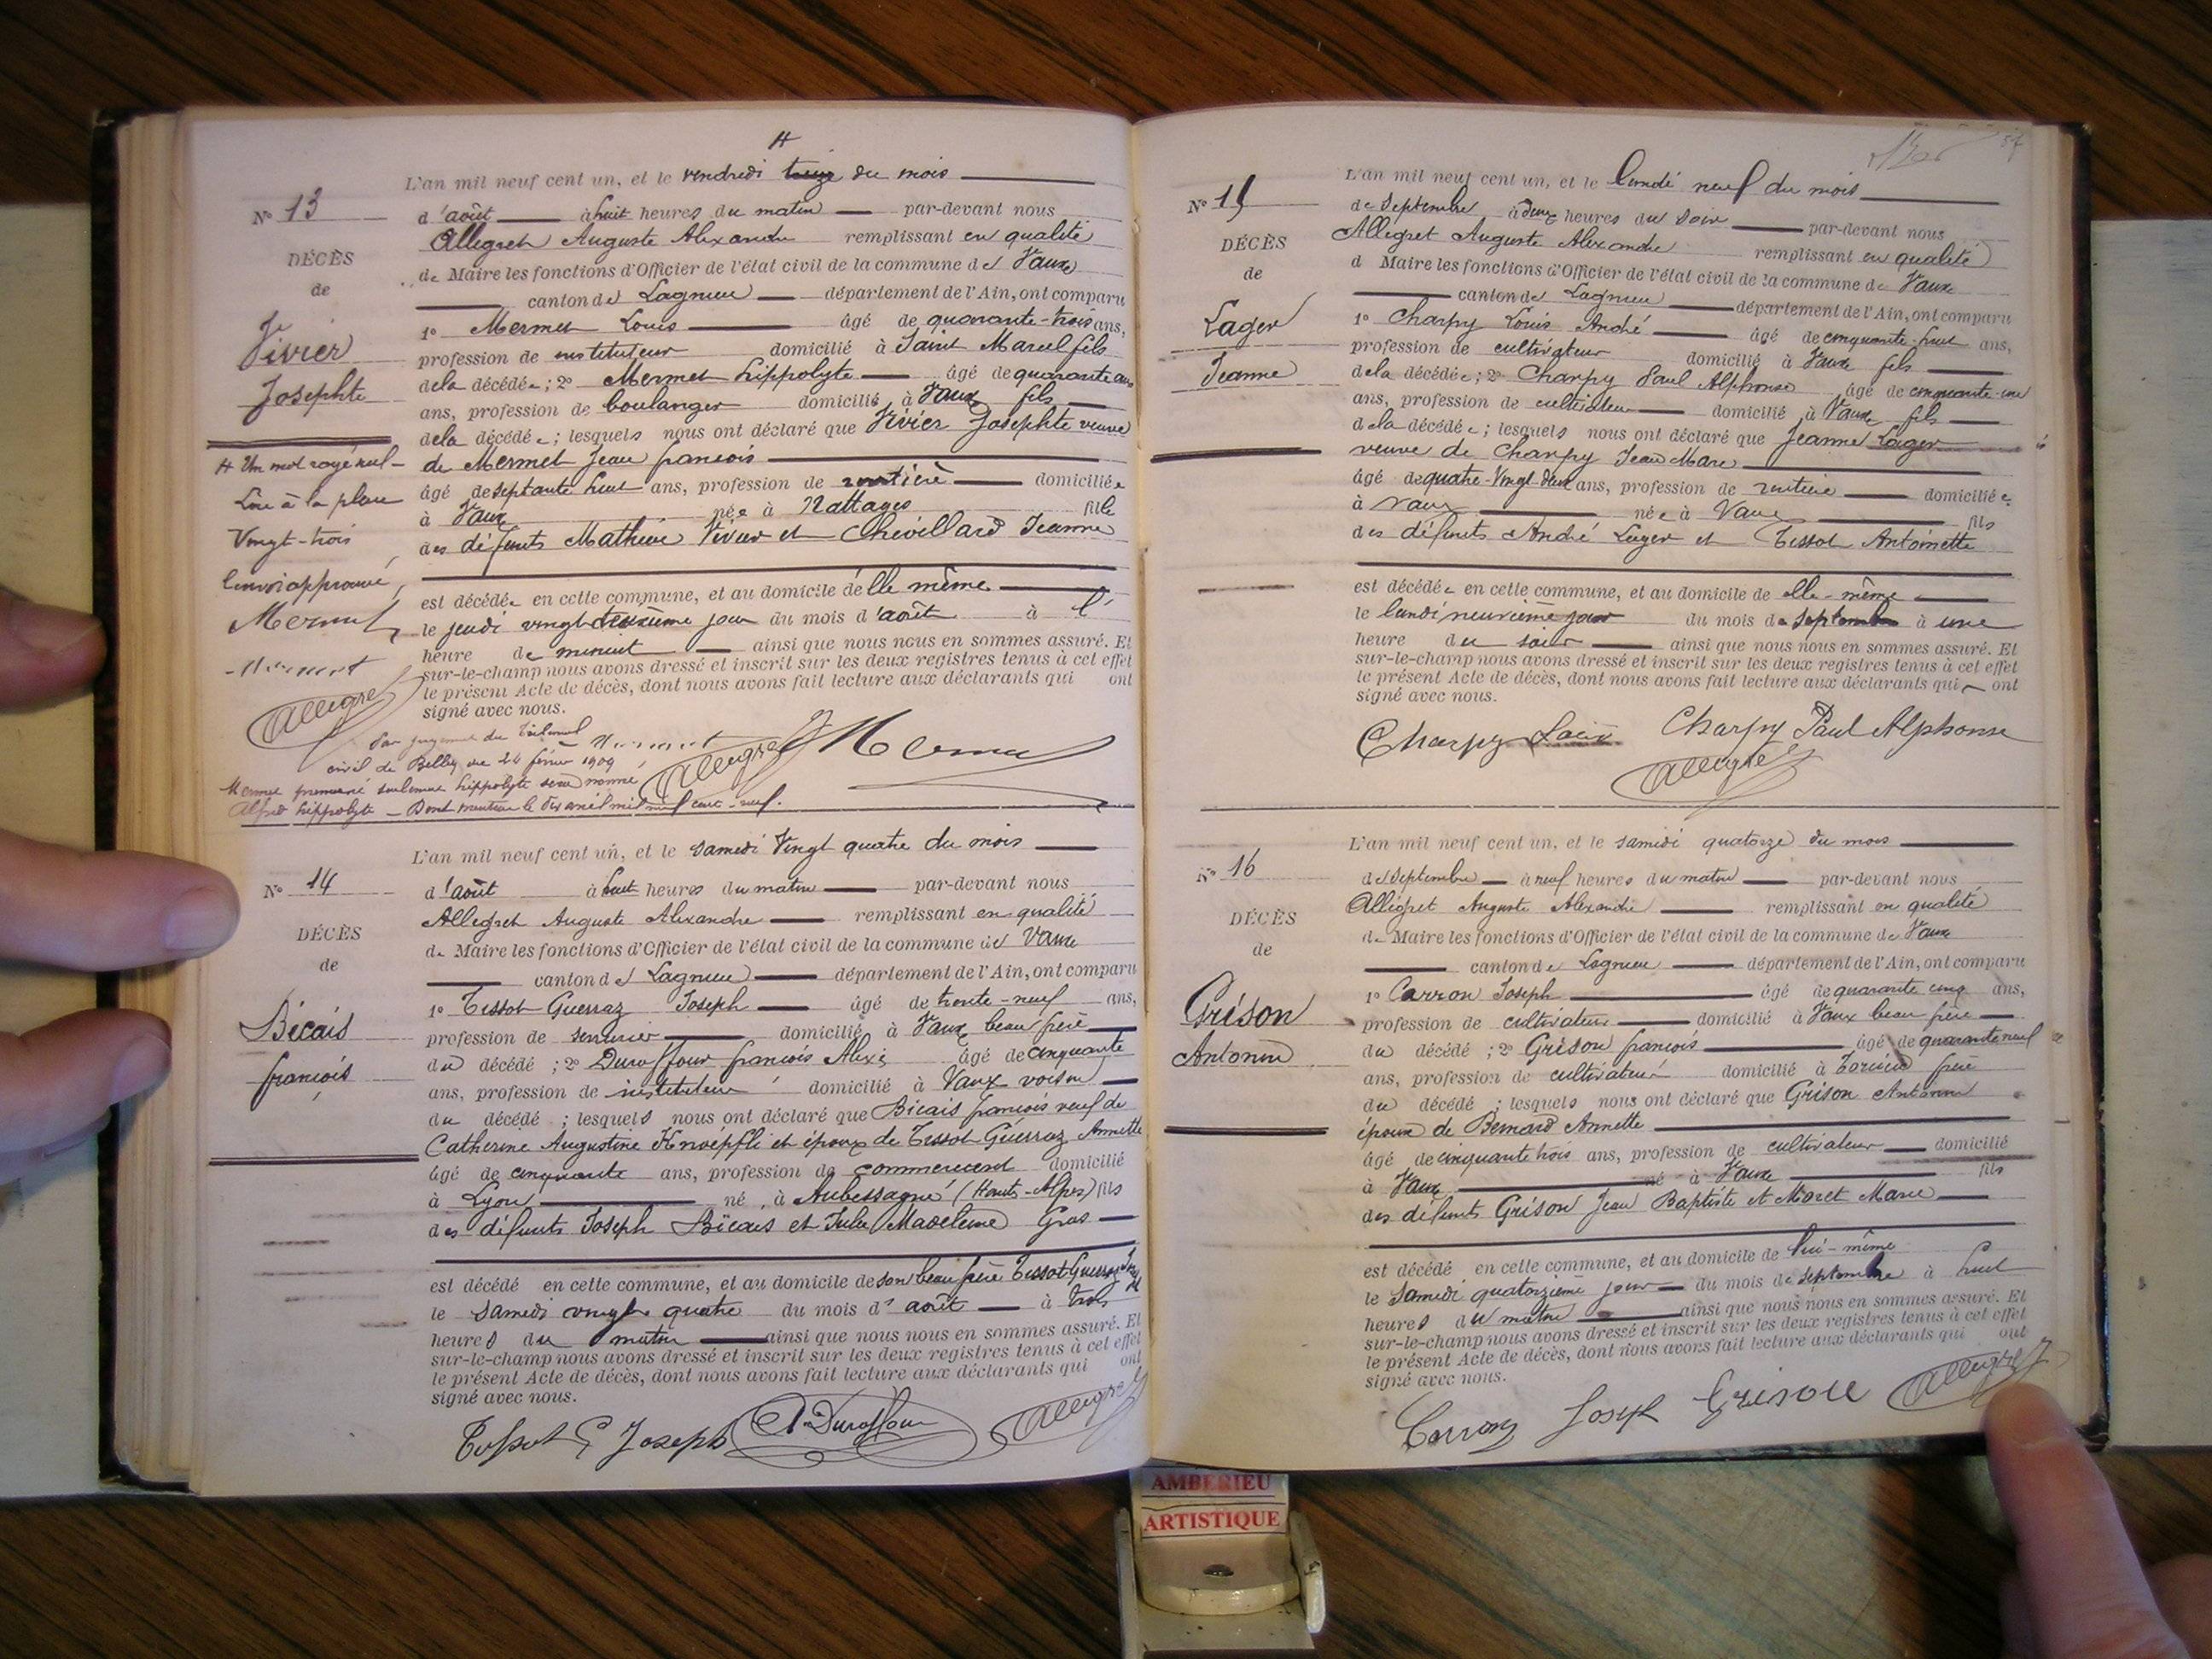 H
L'an mil neuf cent un, et le vendredi treize du mois
d'août à huit heures du matin par-devant nous
Allegret Auguste Alexandre remplissant en qualité
de Maire les fonctions d'Officier de l'état civil de la commune de Vaux
canton de Lagnieu département de l'Ain, ont comparu
1º Mermet Louis âgé de quarante-trois ans,
profession de instituteur domicilié à Saint Marcel fils
de la décédée; 2º Mermet hippolyte âgé de quarante ans
ans, profession de boulanger domicilié à Vaux fils
de la décédée; lesquels nous ont déclaré que Vivier Josephte veuve
de Mermet Jean françois
âgé de septante huit ans, profession de rentière domiciliée
à Vaux née à Nattages fille
des défunts Mathieu Vivier et Chevillard Jeanne
est décédée en cette commune, et au domicile d'elle même
le jeudi vingt deuxième jour du mois d'août à
heure de minuit ainsi que nous nous en sommes assuré. Et
sur-le-champ nous avons dressé et inscrit sur les deux registres tenus à cet effet
le présent Acte de décès, dont nous avons fait lecture aux déclarants qui ont
signé avec nous.
Nº 13
DÉCÈS
de
Vivier
Josephte
H Un mot rayé nul
Lire à la place
Vingt-trois
approuvé
Mermet
Mermet
Allegret
Par jugement du Tribunal
civil de Belley du 24 février 1909
Mermet prénommé seulement hippolyte sera nommé
Alfred hippolyte - Dont mention le dix avril mil neuf cent-neuf.
Mermet Allegret Mermet
L'an mil neuf cent un, et le samedi Vingt quatre du mois
d'août à huit heures du matin par-devant nous
Allegret Auguste Alexandre remplissant en qualité
de Maire les fonctions d'Officier de l'état civil de la commune de Vaux
canton de Lagnieu département de l'Ain, ont comparu
1º Tissot Guerraz Joseph âgé de trente-neuf ans,
profession de serrurier domicilié à Vaux beau frère
du décédé; 2º Duraffour françois Alexis âgé de cinquante
ans, profession de instituteur domicilié à Vaux voisin
du décédé; lesquels nous ont déclaré que Bicais françois veuf de
Catherine Augustine Knoepfli et époux de Tissot Guerraz Annette
âgé de cinquante ans, profession de commercent domicilié
à Lyon né à Aubessagne (Hautes-Alpes) fils
des défunts Joseph Bicais et Julie Madeleine Gras
est décédé en cette commune, et au domicile de son beau frère Tissot Guerraz
le samedi vingt quatre du mois d'août à trois
heures du matin ainsi que nous nous en sommes assuré. Et
sur-le-champ nous avons dressé et inscrit sur les deux registres tenus à cet effet
le présent Acte de décès, dont nous avons fait lecture aux déclarants qui ont
signé avec nous.
Nº 14
DÉCÈS
de
Bicais
françois
Tissot G Joseph A Duraffour Allegret
L'an mil neuf cent un, et le lundi neuf du mois
de septembre à deux heures du soir par-devant nous
Allegret Auguste Alexandre remplissant en qualité
d Maire les fonctions d'Officier de l'état civil de la commune de Vaux
canton de Lagnieu département de l'Ain, ont comparu
1º Charpy Louis André âgé de cinquante-huit ans,
profession de cultivateur domicilié à Vaux fils
de la décédée; 2º Charpy Paul Alphonse âgé de cinquante-un
ans, profession de cultivateur domicilié à Vaux fils
de la décédée; lesquels nous ont déclaré que Jeanne Lager
veuve de Charpy Jean Marc
âgé de quatre-Vingt deux ans, profession de rentière domiciliée
à Vaux née à Vaux fils
des défunts André Lager et Tissot Antoinette
est décédée en cette commune, et au domicile de elle-même
le lundi neuvième jour du mois de septembre à une
heure du soir ainsi que nous nous en sommes assuré. Et
sur-le-champ nous avons dressé et inscrit sur les deux registres tenus à cet effet
le présent Acte de décès, dont nous avons fait lecture aux déclarants qui ont
signé avec nous.
Nº 15
DÉCÈS
de
Lager
Jeanne
Charpy Louis Charpy Paul Alphonse
Allegret
L'an mil neuf cent un, et le samedi quatorze du mois
de septembre à neuf heures du matin par-devant nous
Allegret Auguste Alexandre remplissant en qualité
de Maire les fonctions d'Officier de l'état civil de la commune de Vaux
canton de Lagnieu département de l'Ain, ont comparu
1º Carron Joseph âgé de quarante cinq ans,
profession de cultivateur domicilié à Vaux beau frère
du décédé; 2º Grison françois âgé de quarante neuf
ans, profession de cultivateur domicilié à Torcieu frère
du décédé; lesquels nous ont déclaré que Grison Antonin
époux de Bernard Annette
âgé de cinquante trois ans, profession de cultivateur domicilié
à Vaux né à Vaux fils
des défunts Grison Jean Baptiste et Moret Marie
est décédé en cette commune, et au domicile de lui-même
le Samedi quatorzième jour du mois de septembre à huit
heures du matin ainsi que nous nous en sommes assuré. Et
sur-le-champ nous avons dressé et inscrit sur les deux registres tenus à cet effet
le présent Acte de décès, dont nous avons fait lecture aux déclarants qui ont
signé avec nous.
Nº 16
DÉCÈS
de
Grison
Antonin
Carron Joseph Grison Allegret
AMBERIEU
ARTISTIQUE